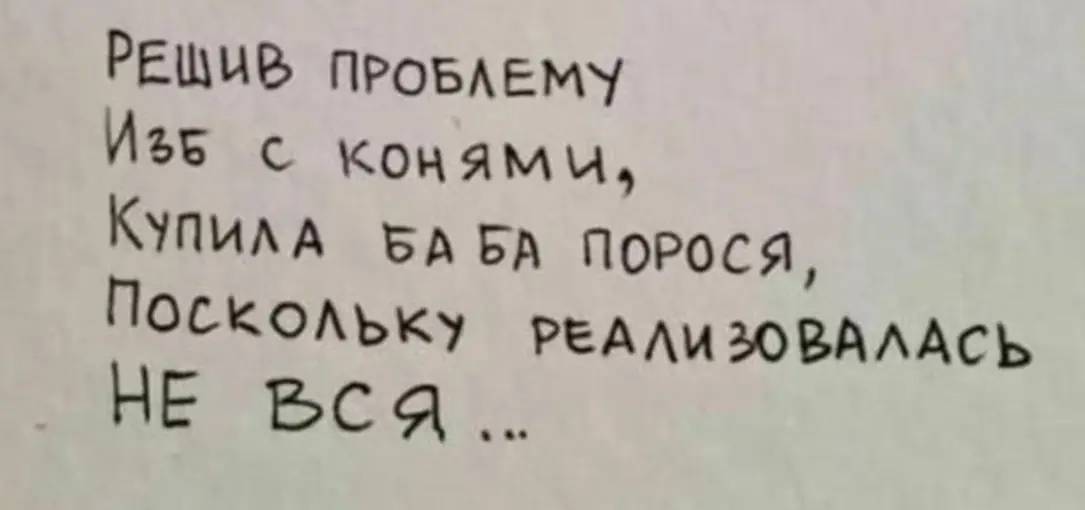 РЕШИВ ПРОБЛЕМУ
ИЗБ С КОНЯМИ,
КУПИЛА БАБА ПОРОСЯ,
ПОСКОЛЬКУ РЕАЛИЗОВАЛАСЬ
НЕ ВСЯ...